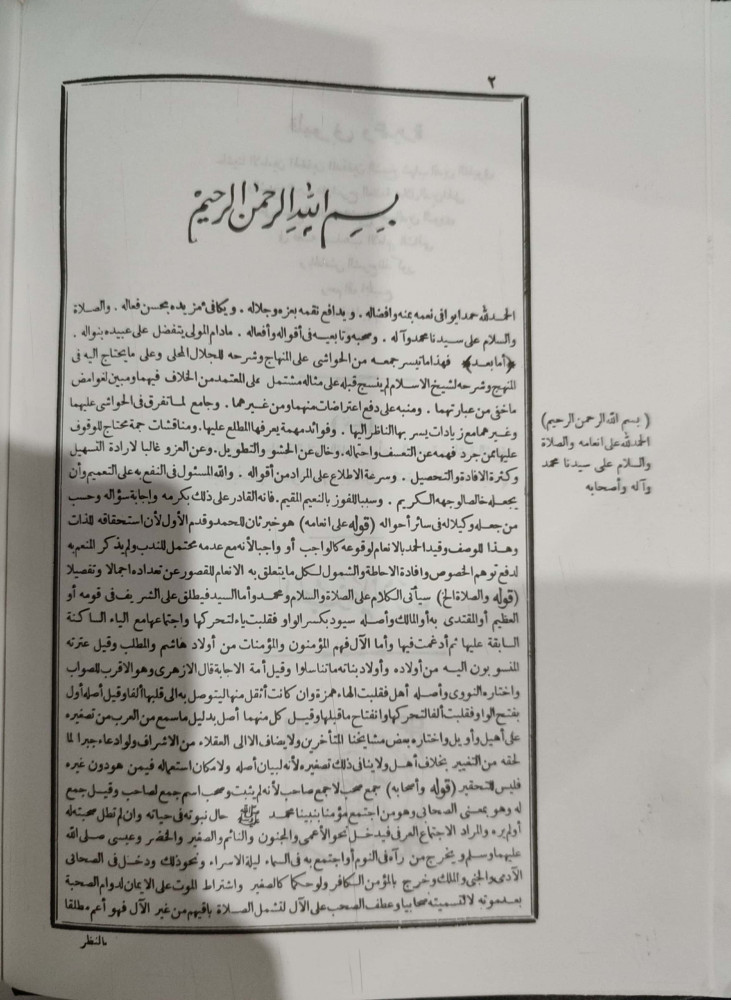 ٢
بسم الله الرحمن الرحيم
الحمد لله حمدا يوافى نعمه بمنه وافضاله . ويدافع نقمه بعزه وجلاله . ويكافئ مزيده بحسن فعاله . والصلاة
والسلام على سيدنا محمد وآله . وصحبه وتابعيه فى أقواله وأفعاله . مادام المولى يتفضل على عبيده بنواله .
﴿أما بعد﴾ فهذا ما تيسر جمعه من الحواشى على المنهاج وشرحه للجلال المحلى وعلى ما يحتاج اليه فى
المنهج وشرحه لشيخ الاسلام لم ينسج قبله على مثاله مشتمل على المعتمد من الخلاف فيهما ومبين لغوامض
ماخفى من عبارتهما . ومنبه على دفع اعتراضات منهما ومن غيرهما . وجامع لما تفرق فى الحواشى عليهما
وغيرهما مع زيادات يسر بها الناظر اليها . وفوائد مهمة يعرفها المطلع عليها . ومناقشات جمة محتاج للوقوف
عليها ممن جرد فهمه عن التعسف واحتماله . وخال عن الحشو والتطويل . وعن العزو غالبا لارادة التسهيل
وكثرة الافادة والتحصيل . وسرعة الاطلاع على المراد من أقواله . والله المسئول فى النفع به على التعميم وأن
يجعله خالصا لوجهه الكريم . وسببا للفوز بالنعيم المقيم . فانه القادر على ذلك بكرمه وإجابة سؤاله وحسب
من جعله وكيلا له فى سائر أحواله (قوله على انعامه) هو خبر ثان للحمد وقدم الأول لأن استحقاقه للذات
وهذا للوصف وقيد الحمد بالانعام لوقوعه كالواجب أو واجبا لأنه مع عدمه محتمل للندب ولم يذكر المنعم به
لدفع توهم الخصوص وافادة الاحاطة والشمول لكل ما يتعلق به الانعام للقصور عن تعداده اجمالا وتفصيلا
(قوله والصلاة الخ) سيأتى الكلام على الصلاة والسلام ومحمد وأما السيد فيطلق على الشريف فى قومه أو
العظيم أو المقتدى به أو المالك وأصله سيود بكسر الواو فقلبت ياء لتحركها واجتماعها مع الياء الساكنة
السابقة عليها ثم أدغمت فيها وأما الآل فهم المؤمنون والمؤمنات من أولاد هاشم والمطلب وقيل عترته
المنسوبون اليه من أولاده وأولاد بناته ماتناسلوا وقيل أمة الاجابة قال الازهرى وهو الاقرب للصواب
واختاره النووى وأصله أهل فقلبت الهاء همزة وان كانت أثقل منها ليتوصل به الى قلبها ألفا وقيل أصله أول
بفتح الواو فقلبت ألفا لتحركها وانفتاح ماقبلها وقيل كل منهما أصل بدليل ماسمع من العرب من تصغيره
على أهيل وأويل واختاره بعض مشايخنا المتأخرين ولا يضاف الا الى العقلاء من الاشراف ولو ادعاء جبرا لما
لحقه من التغيير بخلاف أهل ولا ينافى ذلك تصغيره لأنه لبيان أصله ولا مكان استعماله فيمن هو دون غيره
فليس للتحقير (قوله وأصحابه) جمع صحب لا جمع صاحب لأنه لم يثبت وصحب اسم جمع لصاحب وقيل جمع
له وهو بمعنى الصحابى وهو من اجتمع مؤمنا بنبينا محمد ﷺ حال نبوته فى حياته وان لم تطل صحبته له
أو لم يره والمراد الاجتماع العرفى فيدخل نحو الأعمى والمجنون والنائم والصغير والخضر وعيسى صلى الله
عليهما وسلم ويخرج من رآه فى النوم أو اجتمع به فى السماء ليلة الاسراء ونحو ذلك ودخل فى الصحابى
الآدمى والجنى والملك وخرج بالمؤمن الكافر ولو حكما كالصغير واشتراط الموت على الايمان لدوام الصحبة
بعد موته لا لتسميته صحابيا وعطف الصحب على الآل لتشمل الصلاة باقيهم من غير الآل فهو أعم مطلقا
بالنظر
( بسم الله الرحمن الرحيم)
الحمد لله على انعامه والصلاة
والسلام على سيدنا محمد
وآله وأصحابه